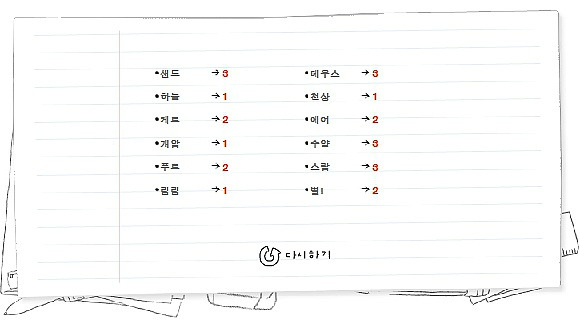 •샌드 → 3 •데무스 → 3
•하늘 → 1 •천상 → 1
•케르 → 2 •에어 → 2
•개암 → 1 •수양 → 3
•푸르 → 2 •스람 → 3
•림림 → 1 •별i → 2
다시하기